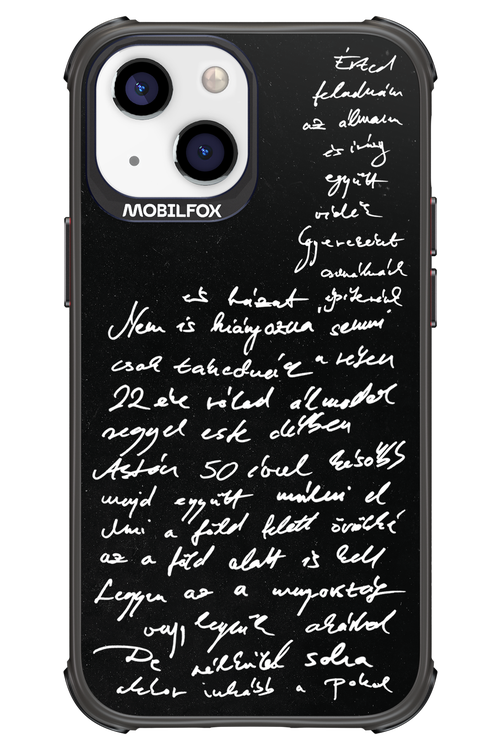 MOBILFOX
Érted
feladnám
az álmaim
és így
együtt
Gyerekeink
csinálnánk
és házat építenénk
Nem is hiányozna semmi
csak
22 éve rólad álmodok
reggel este délben
Aztán 50 évvel később
majd együtt múlni el
Ami a föld felett örökké
az a föld alatt is kell
Legyen az a mennyország
vagy legyünk akárhol
De nélküled soha
akkor inkább a Pokol